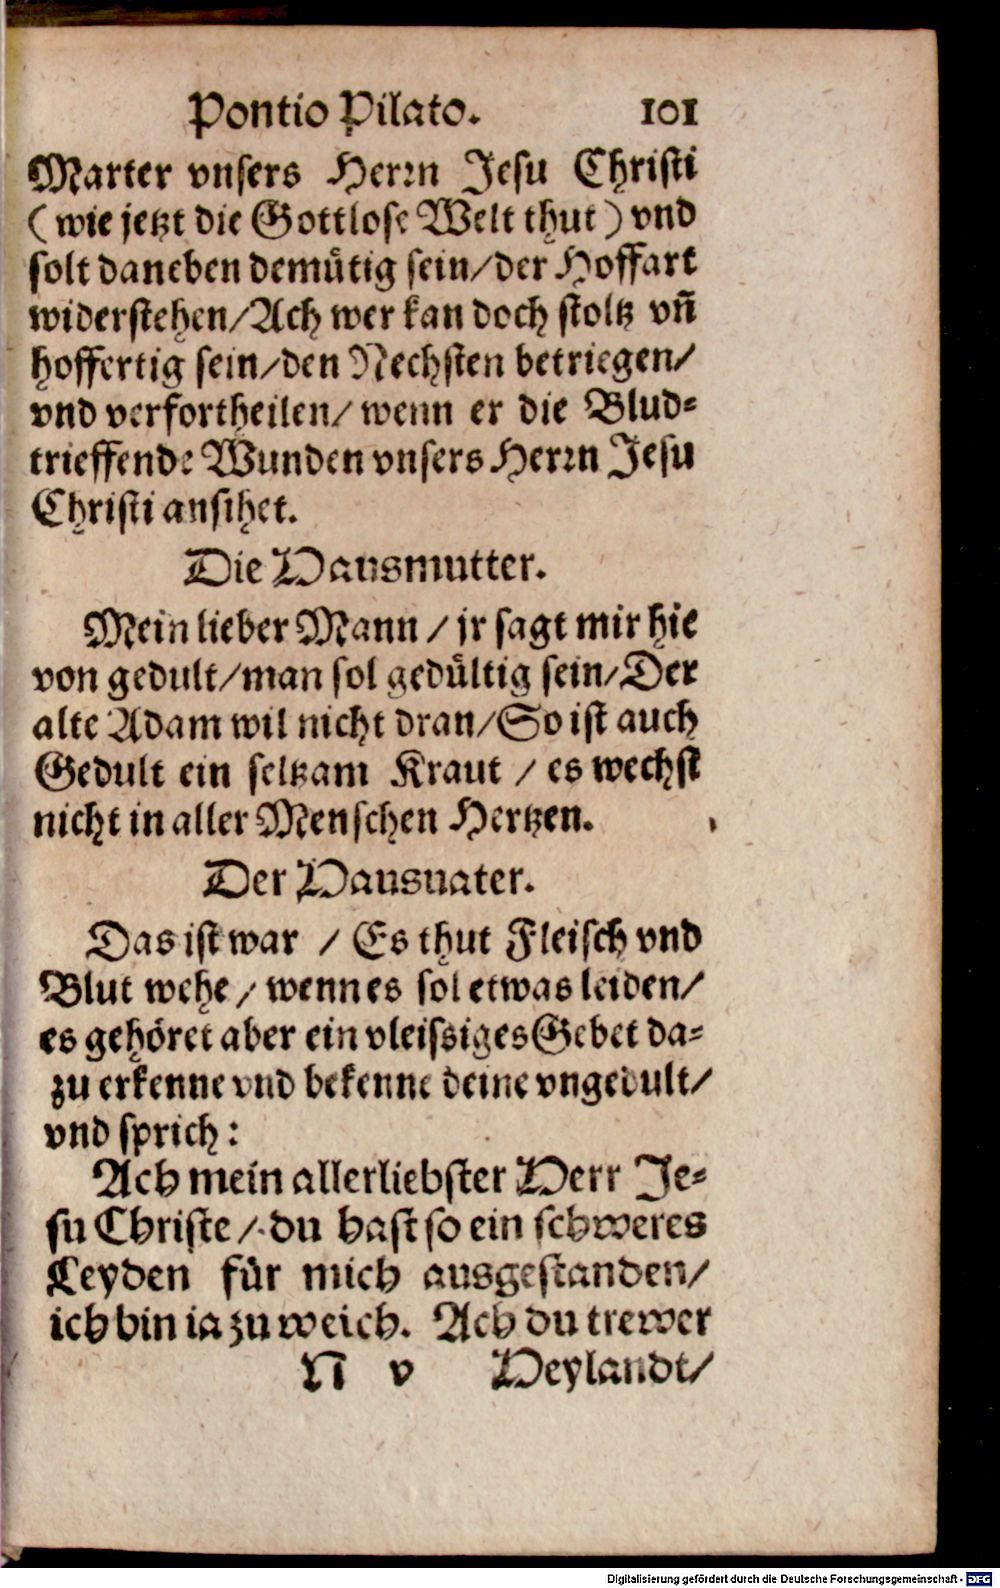 Pontio Pilato. 101
Marter vnsers Herrn Jesu Christi
(wie jetzt die Gottlose Welt thut) vnd
solt daneben demütig sein/der Hoffart
widerstehen/Ach wer kan doch stoltz vñ
hoffertig sein/den Nechsten betriegen/
vnd verfortheilen/ wenn er die Blud-
trieffende Wunden vnsers Herrn Jesu
Christi ansihet.
Die Hausmutter.
Mein lieber Mann / jr sagt mir hie
von gedult/man sol gedültig sein/Der
alte Adam wil nicht dran/So ist auch
Gedult ein seltzam Kraut / es wechst
nicht in aller Menschen Hertzen.
Der Hausuater.
Das ist war / Es thut Fleisch vnd
Blut wehe / wenn es sol etwas leiden/
es gehöret aber ein vleissiges Gebet da-
zu erkenne vnd bekenne deine vngedult/
vnd sprich:
Ach mein allerliebster Herr Je-
su Christe / du hast so ein schweres
Leyden für mich ausgestanden/
ich bin ia zu weich. Ach du trewer
N v Heylandt/
Digitalisierung gefördert durch die Deutsche Forschungsgemeinschaft - DFG